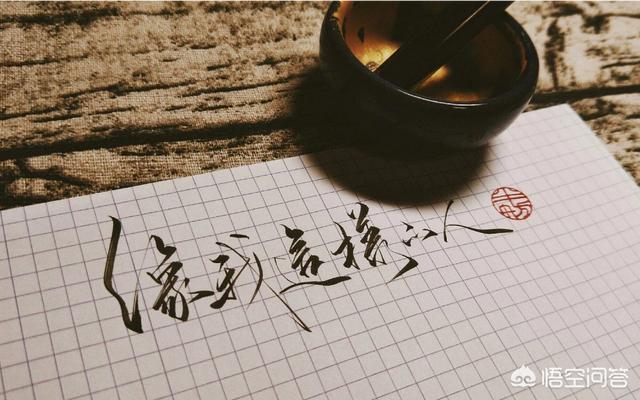 像我这样的人
悟空问答